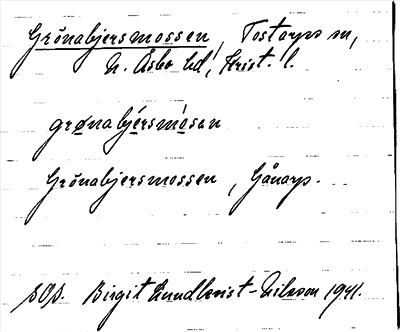 Grönabjersmossen, Tostarps sn,
N. Åsbo hd, Krist. l.
grønabjérsmósan
Grönabjersmossen, Gånarp.
SOD. Birgit Lundkvist-Nilsson 1941.